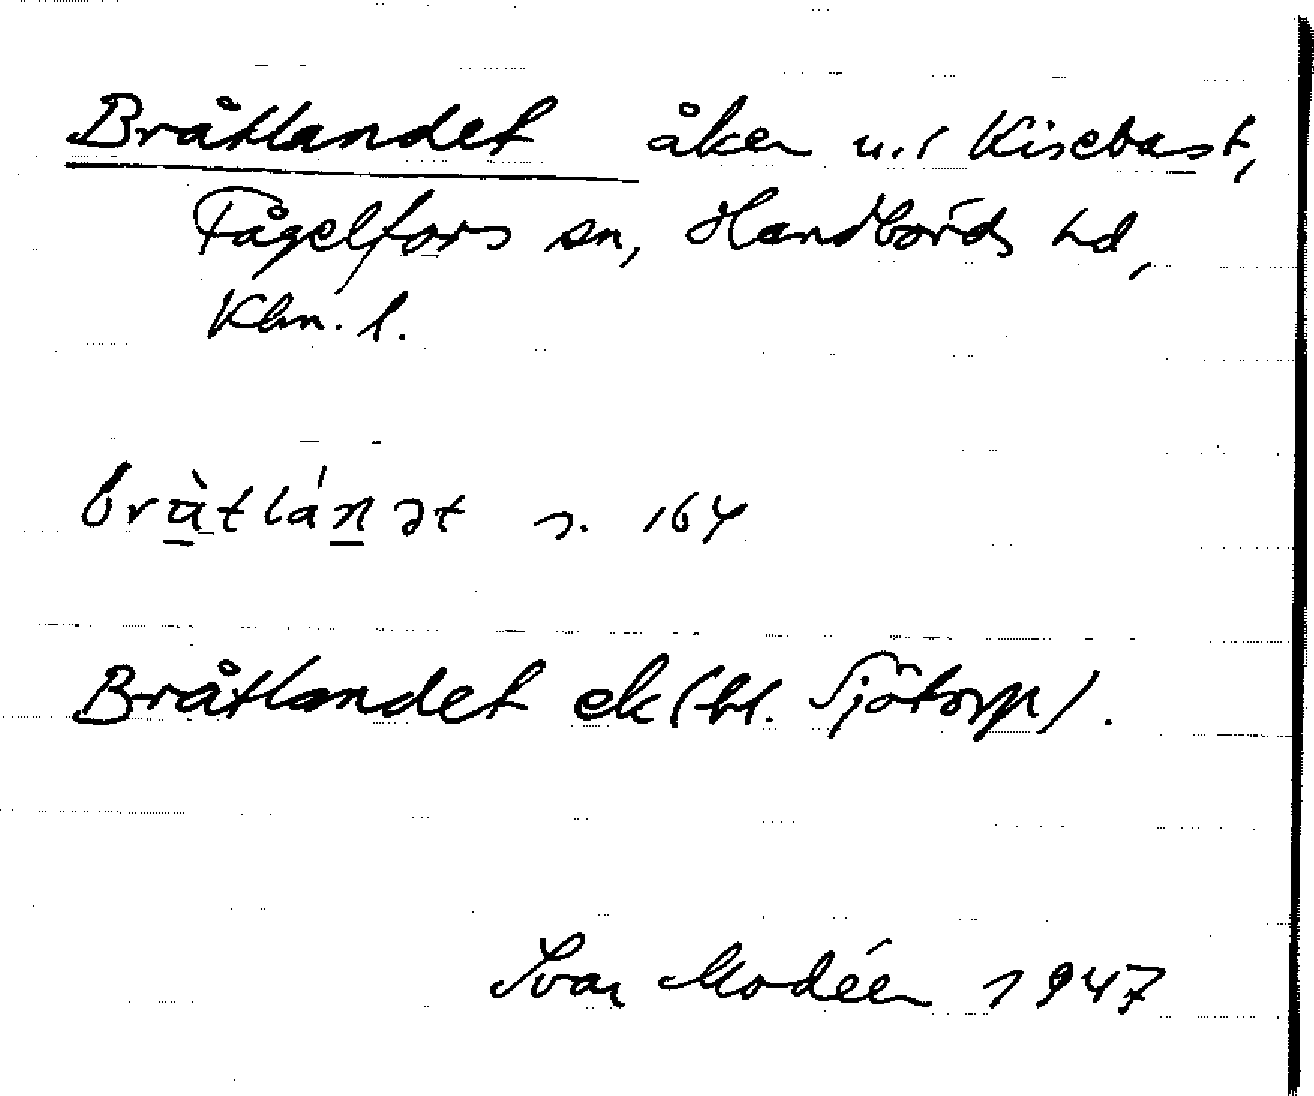 Bråtlandet åker u. / Kisebast,
Fågelfors sn, Handbörds hd,
Klm. l.
bràtlánət s. 164
Bråtlandet ek (bl. Sjötorp).
Ivar Modéer 1947